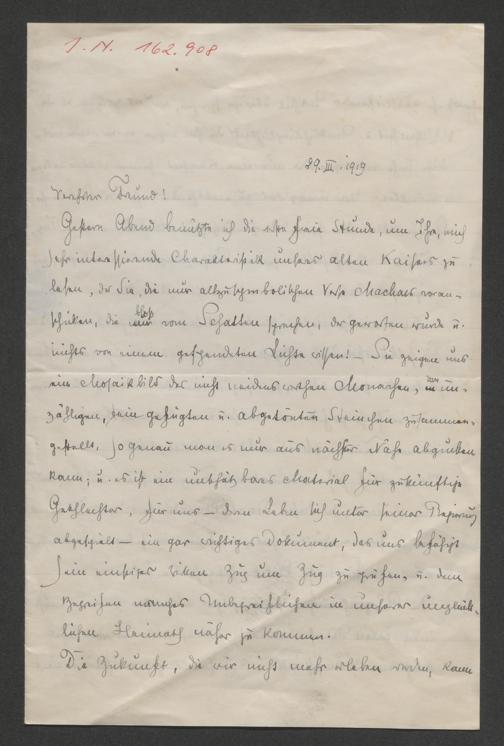 I. N. 162.908
29. III. 1919
Verehrter Freund!
Gestern Abend benützte ich die erste freie Stunde, um Ihre, mich
sehr interessierende Charakteristik unseres alten Kaisers zu
lesen, der Sie, die nur allzu symbolischen Verse Machars voran-
schicken, die bloß vom Schatten sprechen, der geworfen wurde u.
nichts von einem gespendeten Lichte wissen! – Sie zeigen uns
ein Mosaikbild des nicht neidenswerthen Monarchen, aus un-
zähligen, fein gefügten u. abgetönten Steinchen zusammen-
gestellt, so genau man es nur aus nächster Nähe abgucken
kann; u. es ist ein unschätzbares Material für zukünftige
Geschlechter, für uns – deren Leben sich unter seiner Regierung
abgespielt – ein gar wichtiges Dokument, das uns befähigt
sein einstiges Wirken Zug um Zug zu prüfen, u. dem
Begreifen manches Unbegreiflichen in unserer unglück-
lichen Heimath näher zu kommen.
Die Zukunft, die wir nicht mehr erleben werden, kann